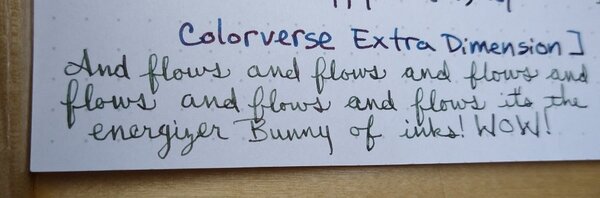 Colorverse Extra Dimension]
And flows and flows and flows and
flows and flows and flows its the
energizer Bunny of inks! WOW!